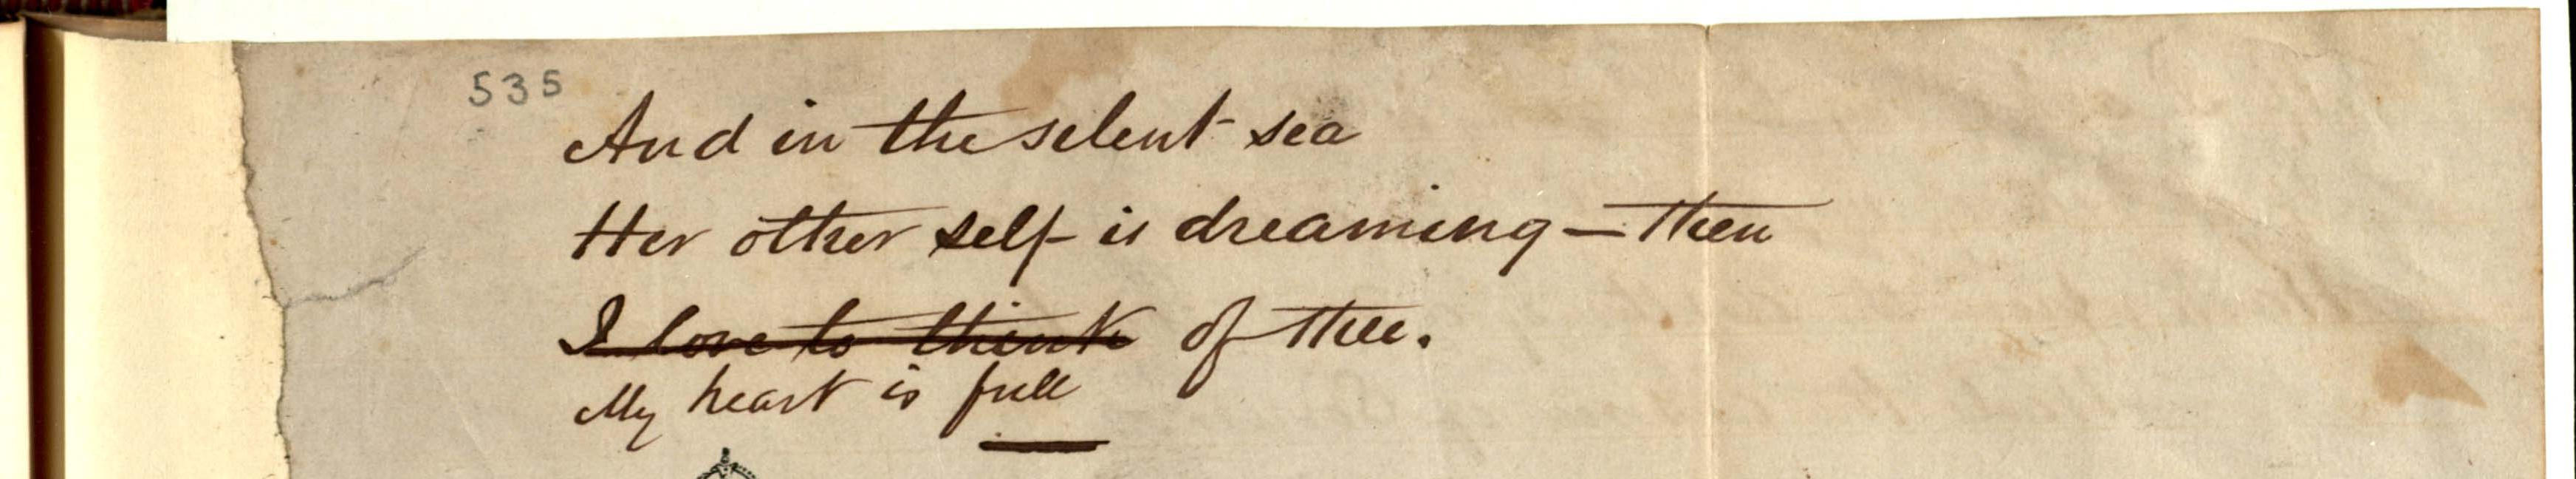 535
And in the silent sea
Her other self is dreaming — then
I love to think of thee.
My heart is full